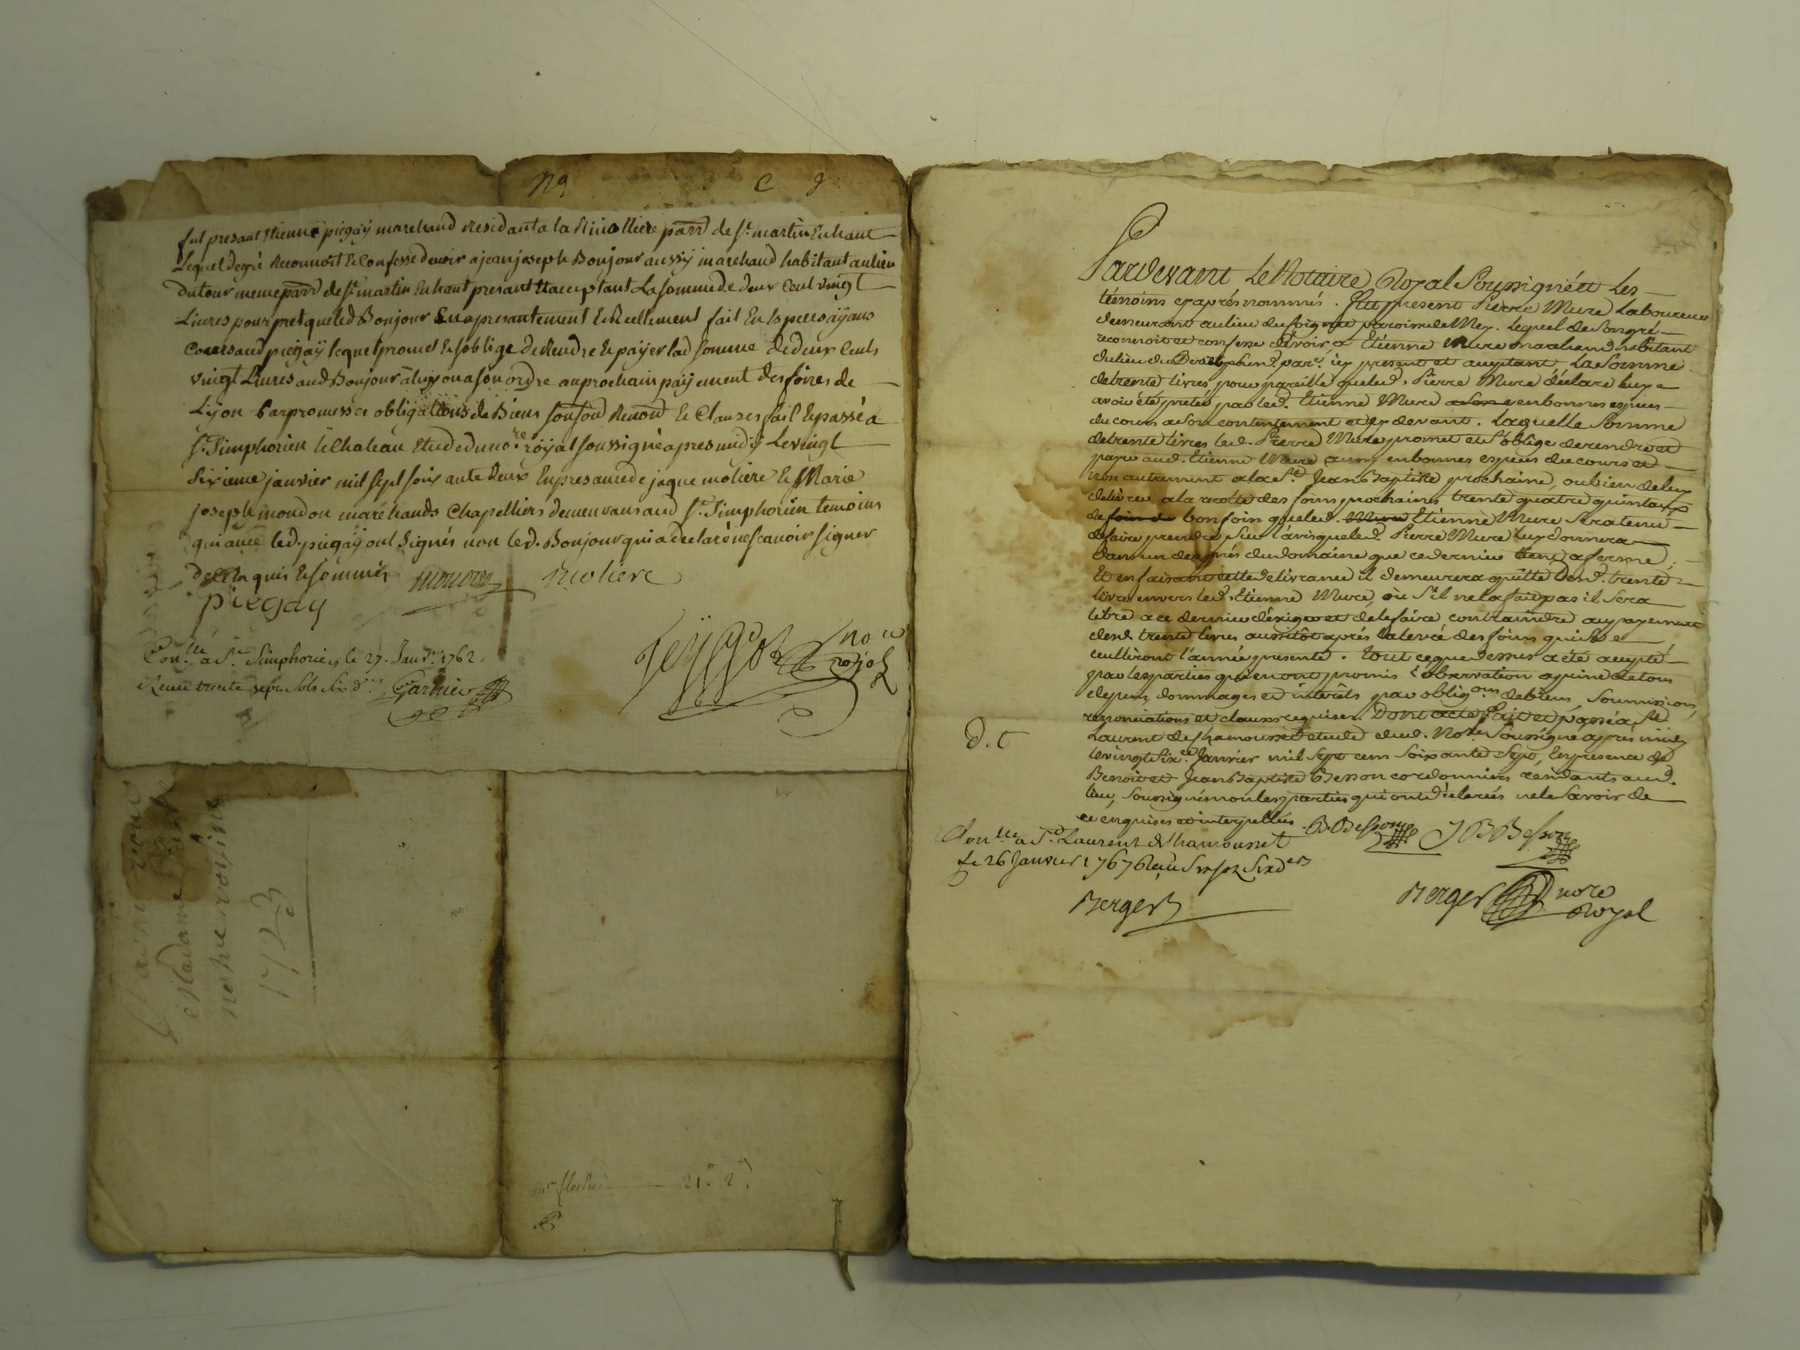 fut presant Etienne piégaÿ marchand residant a la parr de st. martin En haut
Lequel de gré Reconnoit Et Confesse devoir a jean joseph Bonjour aussÿ marchand habitant au lieu
Du tour meme parr de st. martin En haut presant Et acceptant La somme de deux Cent vingt
Livres pour pret que led Bonjour En a presantement Et Reellement fait En Especes aÿans
Cours aud piegaÿ lequel promet Et s'oblige De Rendre Et paÿer lad somme de deux Cents
vingt Livres aud Bonjour a luÿ ou a son ordre au prochain paÿement des foires de
Lÿon par promesses obligations de Biens soum Renond Et Clauses fait Et passé a
st. Simphorien le Chateau Etude du nore. roÿal soussigné apres midÿ Le vingt
Sixieme janvier mil sept soixante deux En presance de jaque moliere Et Marie
joseph moudon marchands Chapelliers demeurans aud st. Simphorien temoins
qui avec led. piegaÿ ont signés non led. Bonjour qui a declaré ne scavoir signer
De ce Enquis Et sommés moliere
piegay
nore royal
Conllé a St. Simphorien le 27. Janvr. 1762.
Receu trente sept sols six drs
Pardevant Le Notaire Royal Soussigné et Les
témoins cy aprés nommés. Fut present Pierre Mure Laboureur
demeurant au lieu du paroisse de Mey. Lequel de son gré
reconnoit et confesse devoir a Etienne Mure marchand habitant
du lieu du parr. icy present et acceptant, La Somme
de trente livres pour pareille que led. Pierre Mure declare luy
avoir été pretée par led. Etienne Mure en bonnes especes
du cours a son contentement et cy devant. Laquelle Somme
de trente livres led. Pierre Mure promet et s'oblige de rendre et
payer aud. Etienne Mure aussy en bonnes especes du cours et
non autrement a la fe. Jean Baptiste prochaine, ou bien de luy
delivrer a la recolte des foins prochaines trente quatre quintaux
de foin de bon foin que led. Mure Etienne Mure sera tenu
de faire prendre que led. Pierre Mure luy donnera
dans un des prés du domaine que ce dernier tient a ferme;
Et en faisant cette delivrance il demeurera quitte desd. trente
livres envers led. Etienne Mure, ou s'il ne la fait pas il sera
libre a ce dernier d'exiger et de le faire contraindre au payement
desd. trente livres aussitôt aprés la levée des foins qui se
cuilliront l'année presente. tout ce que dessus a été accepté
par les parties qui en ont promis l'observation a peine de tous
depens, dommages et intérêts par obligons de biens, soumissions,
renonciations et clauses requises. Dont acte fait et passé a St.
Laurent de Chamousset etude dud. Nore. Soussigné aprés midy
le vingt six. Janvier mil sept cens soixante sept, En presence de
Benoit et Jean Baptiste Besson cordonniers residants aud.
lieu, soussignés non les parties qui ont déclarées ne le savoir de
ce enquises et interpellées. B. Besson J B Besson
d. c
Conllé a St. Laurent de Chamousset
Le 26 Janvier 1767 Reçu six sols six drs
Berger
Berger nore
Royal
vous
Madame
notre voisine
1723
21. 2.